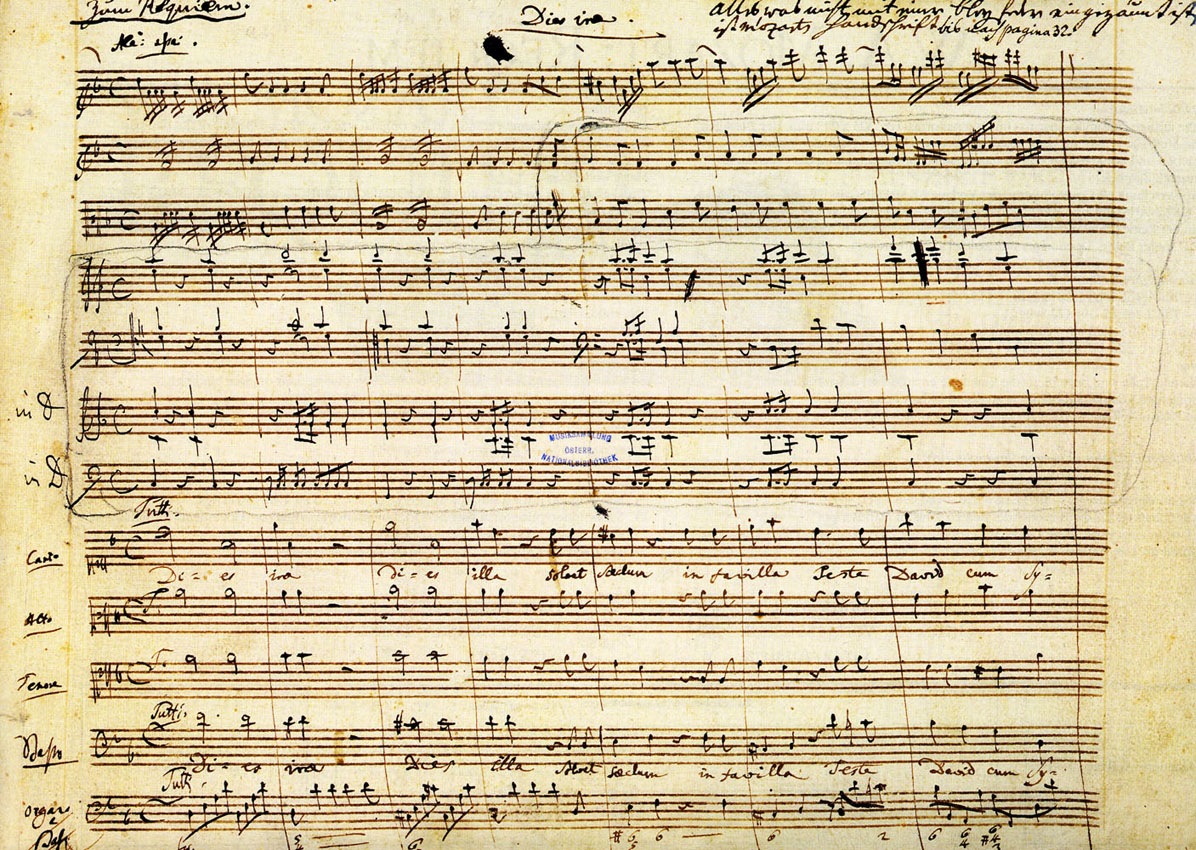 Zum Requiem.
Dies irae
Alles was nicht mit einer bley feder eingezäunt ist
ist Mozarts Handschrift bis nach pagina 32.
All: assai.
in D
MUSIKSAMMLUNG
ÖSTERR.
NATIONALBIBLIOTHEK
in D
Tutti.
Canto
Di = es ira di = es illa solvet sæclum in favilla Teste David cum Sy =
Alto
T.
Tenore
T.
Tutti.
Basso
Di - es ira Dies illa solvet sæclum in favilla Teste David cum Sy =
Tutti.
organo
e
Bassi